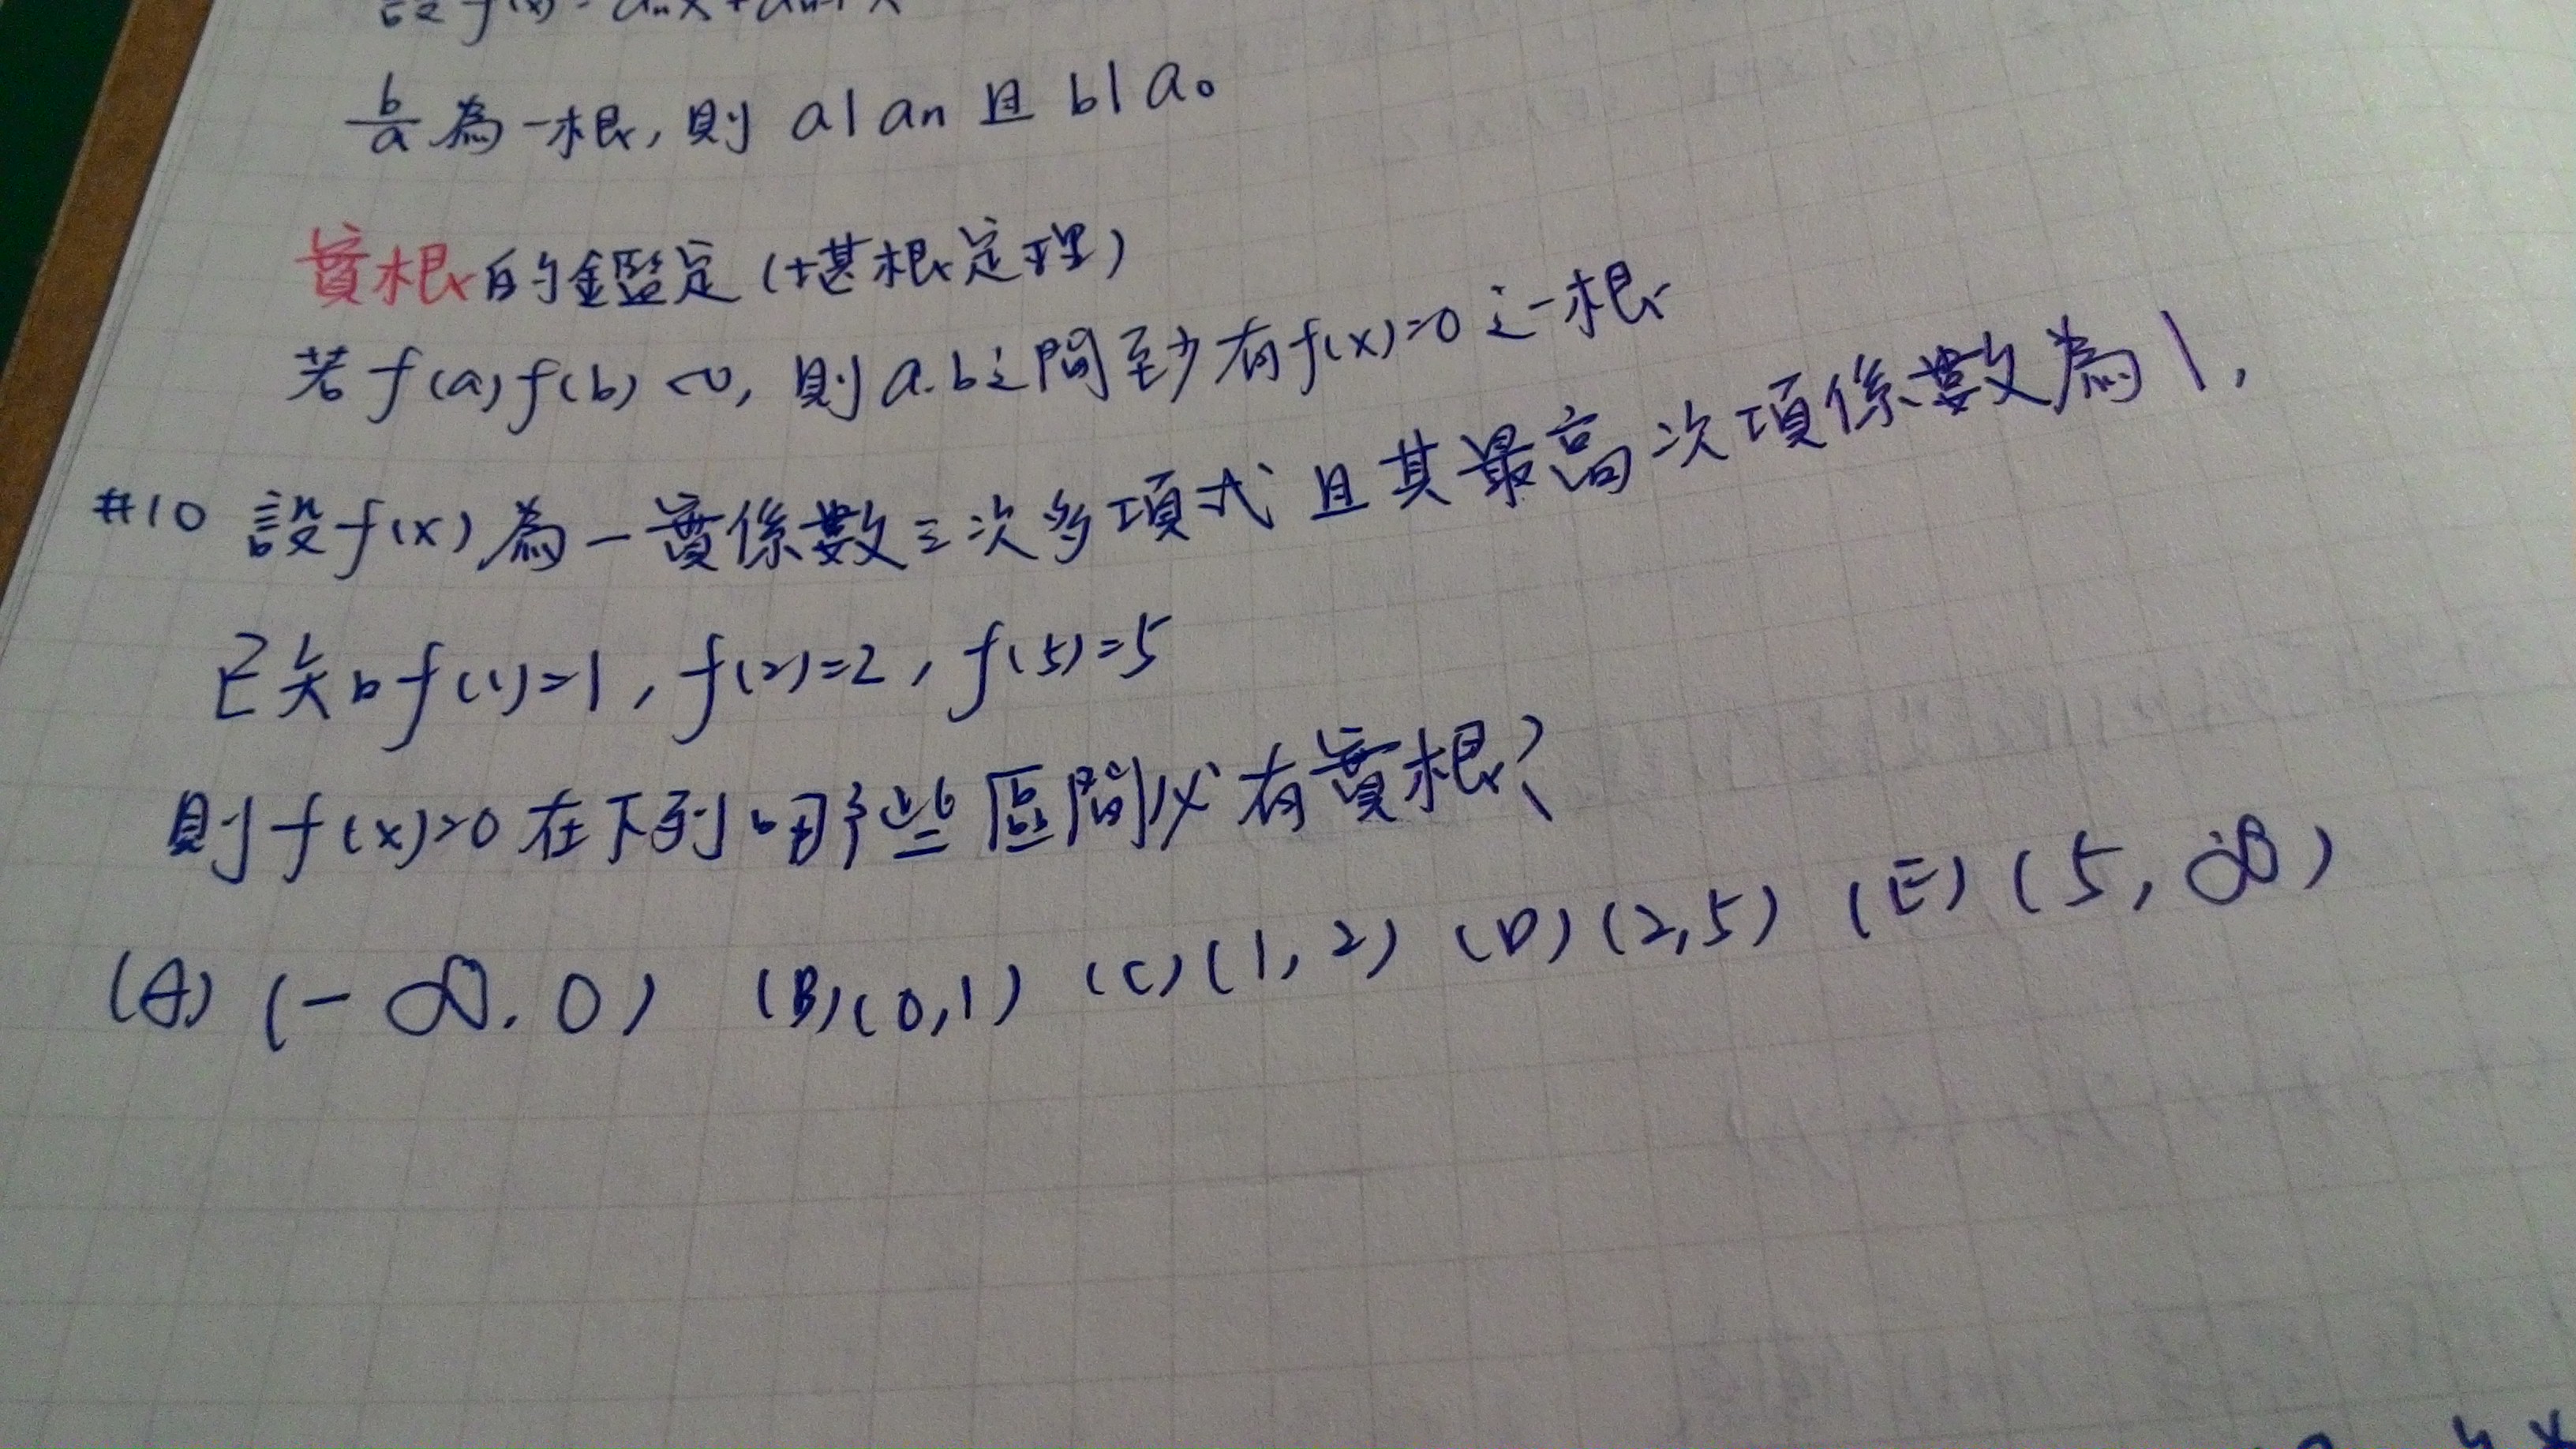 設 f(x) = anx + an-1 x
b/a 為一根, 則 a|an 且 b|a0
實根的鑑定 (堪根定理)
若 f(a)f(b) <0, 則 a.b之間至少有f(x)=0之一根
#10 設f(x)為一實係數三次多項式且其最高次項係數為1,
已知f(1)=1, f(2)=2, f(5)=5
則f(x)=0在下列哪些區間必有實根?
(A) (-∞.0) (B)(0,1) (C)(1,2) (D)(2,5) (E)(5,∞)